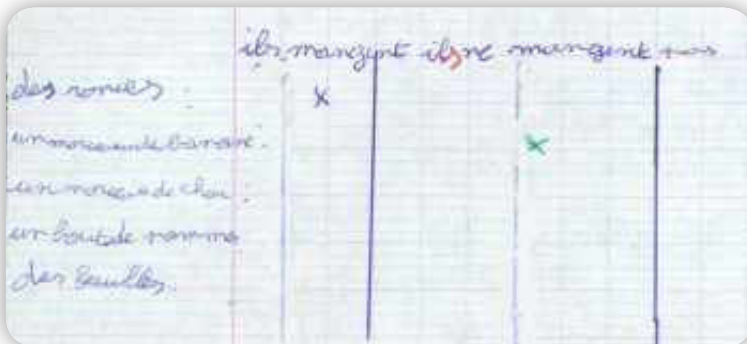 ils mangent ils ne mangent pas
des ronces
un morceau de banane.
un morceau de chou :
un bout de pomme
des feuilles.